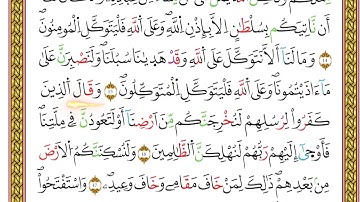 أَن نَّأْتِيَكُم بِسُلْطَٰنٍ إِلَّا بِإِذْنِ ٱللَّهِ ۚ وَعَلَى ٱللَّهِ فَلْيَتَوَكَّلِ ٱلْمُؤْمِنُونَ
١١ وَمَا لَنَآ أَلَّا نَتَوَكَّلَ عَلَى ٱللَّهِ وَقَدْ هَدَىٰنَا سُبُلَنَا ۚ وَلَنَصْبِرَنَّ عَلَىٰ
مَآ ءَاذَيْتُمُونَا ۚ وَعَلَى ٱللَّهِ فَلْيَتَوَكَّلِ ٱلْمُتَوَكِّلُونَ ١٢ وَقَالَ ٱلَّذِينَ
كَفَرُوا۟ لِرُسُلِهِمْ لَنُخْرِجَنَّكُم مِّنْ أَرْضِنَآ أَوْ لَتَعُودُنَّ فِى مِلَّتِنَا ۖ
فَأَوْحَىٰٓ إِلَيْهِمْ رَبُّهُمْ لَنُهْلِكَنَّ ٱلظَّٰلِمِينَ ١٣ وَلَنُسْكِنَنَّكُمُ ٱلْأَرْضَ
مِنۢ بَعْدِهِمْ ۚ ذَٰلِكَ لِمَنْ خَافَ مَقَامِى وَخَافَ وَعِيدِ ١٤ وَٱسْتَفْتَحُوا۟